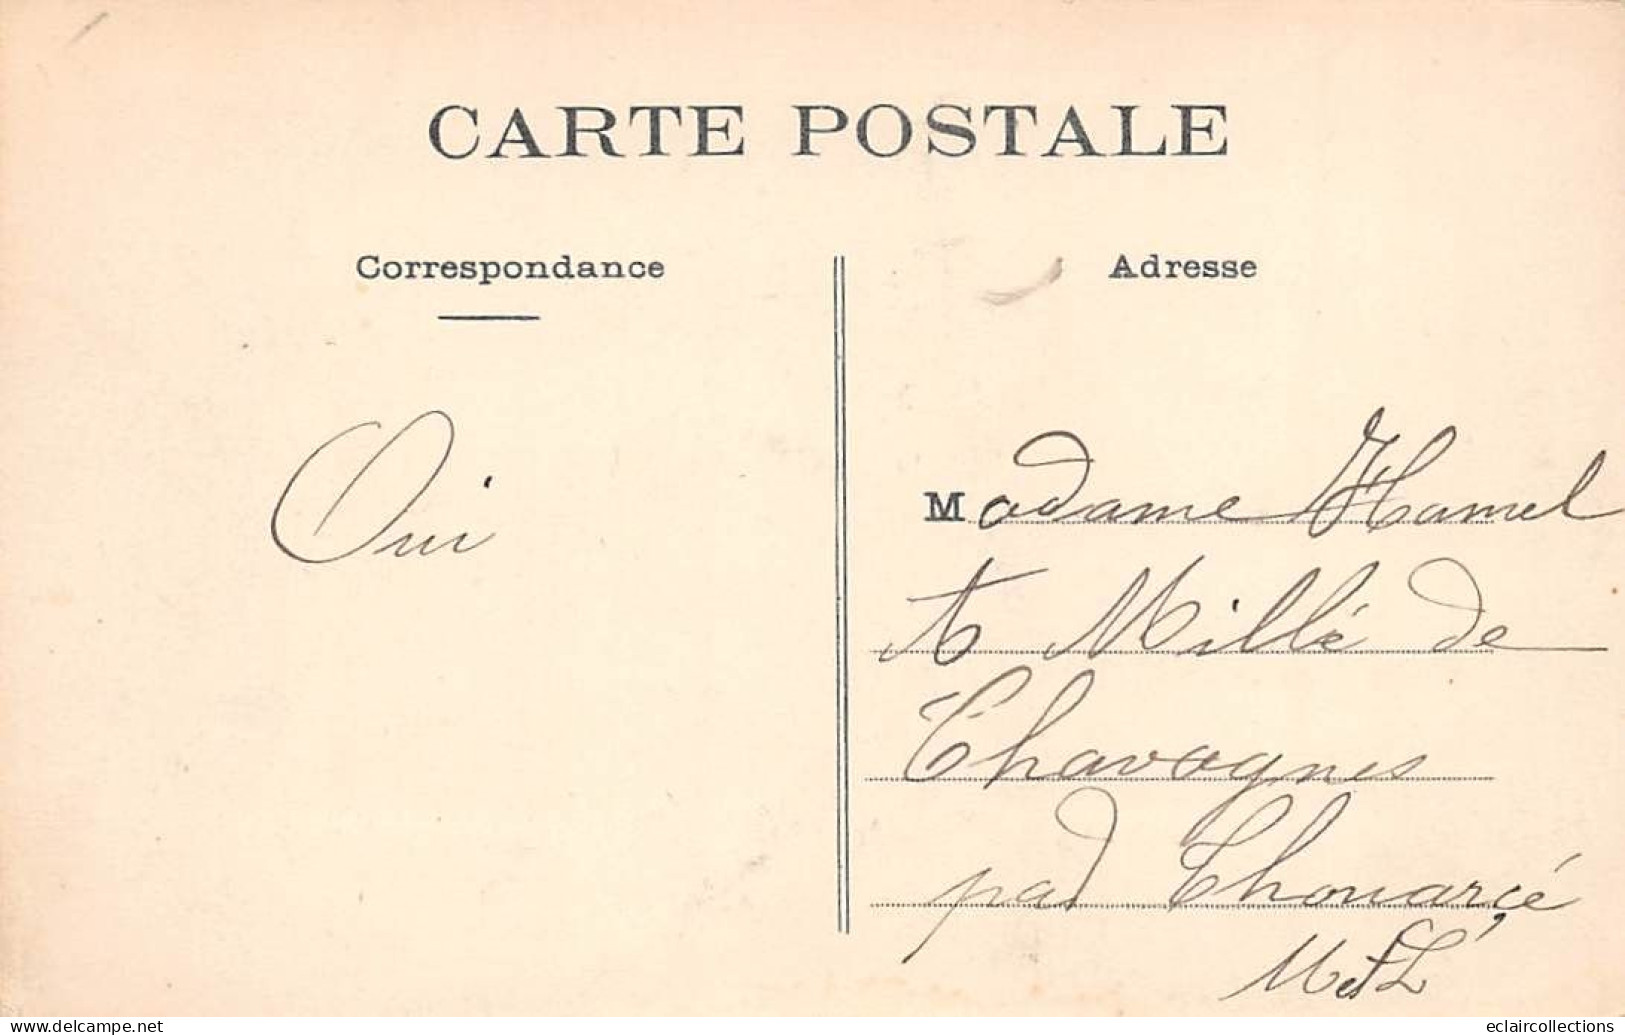 CARTE POSTALE
Correspondance
Adresse
Oui
Madame Hamel
A Millé de
Chavagnes
par Thouarcé
M et L
www.delcampe.net
eclaircollections